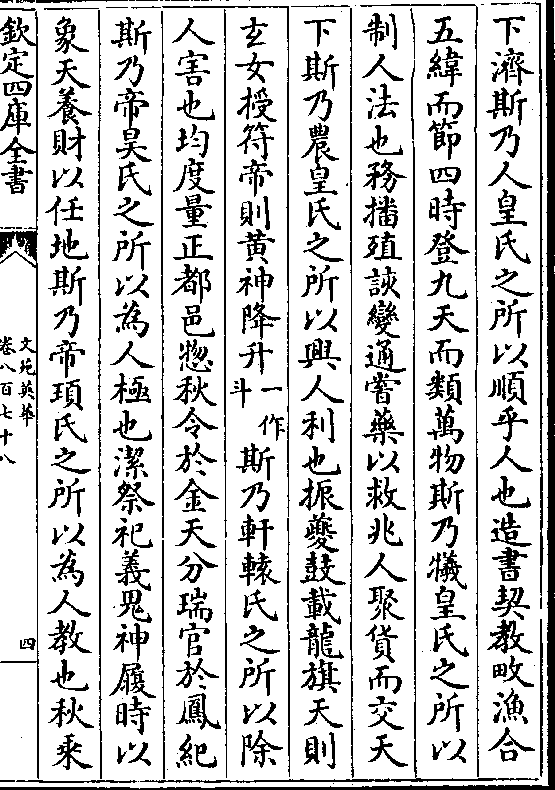 下濟斯乃人皇氏之所以順乎人也造書契教畋漁合
五緯而節四時登九天而類萬物斯乃犧皇氏之所以
制人法也務播殖談變通嘗藥以救兆人聚貨而交天
下斯乃農皇氏之所以興人利也振夔鼓載龍旗天則
玄女授符帝則黄神降升一作斗斯乃軒轅氏之所以除
人害也均度量正都邑惣秋令於金天分瑞官於鳳紀
斯乃帝昊氏之所以為人極也潔祭祀義鬼神履時以
象天養財以任地斯乃帝頊氏之所以為人教也秋乘
欽定四庫全書
文苑英華
卷八百七十八
四